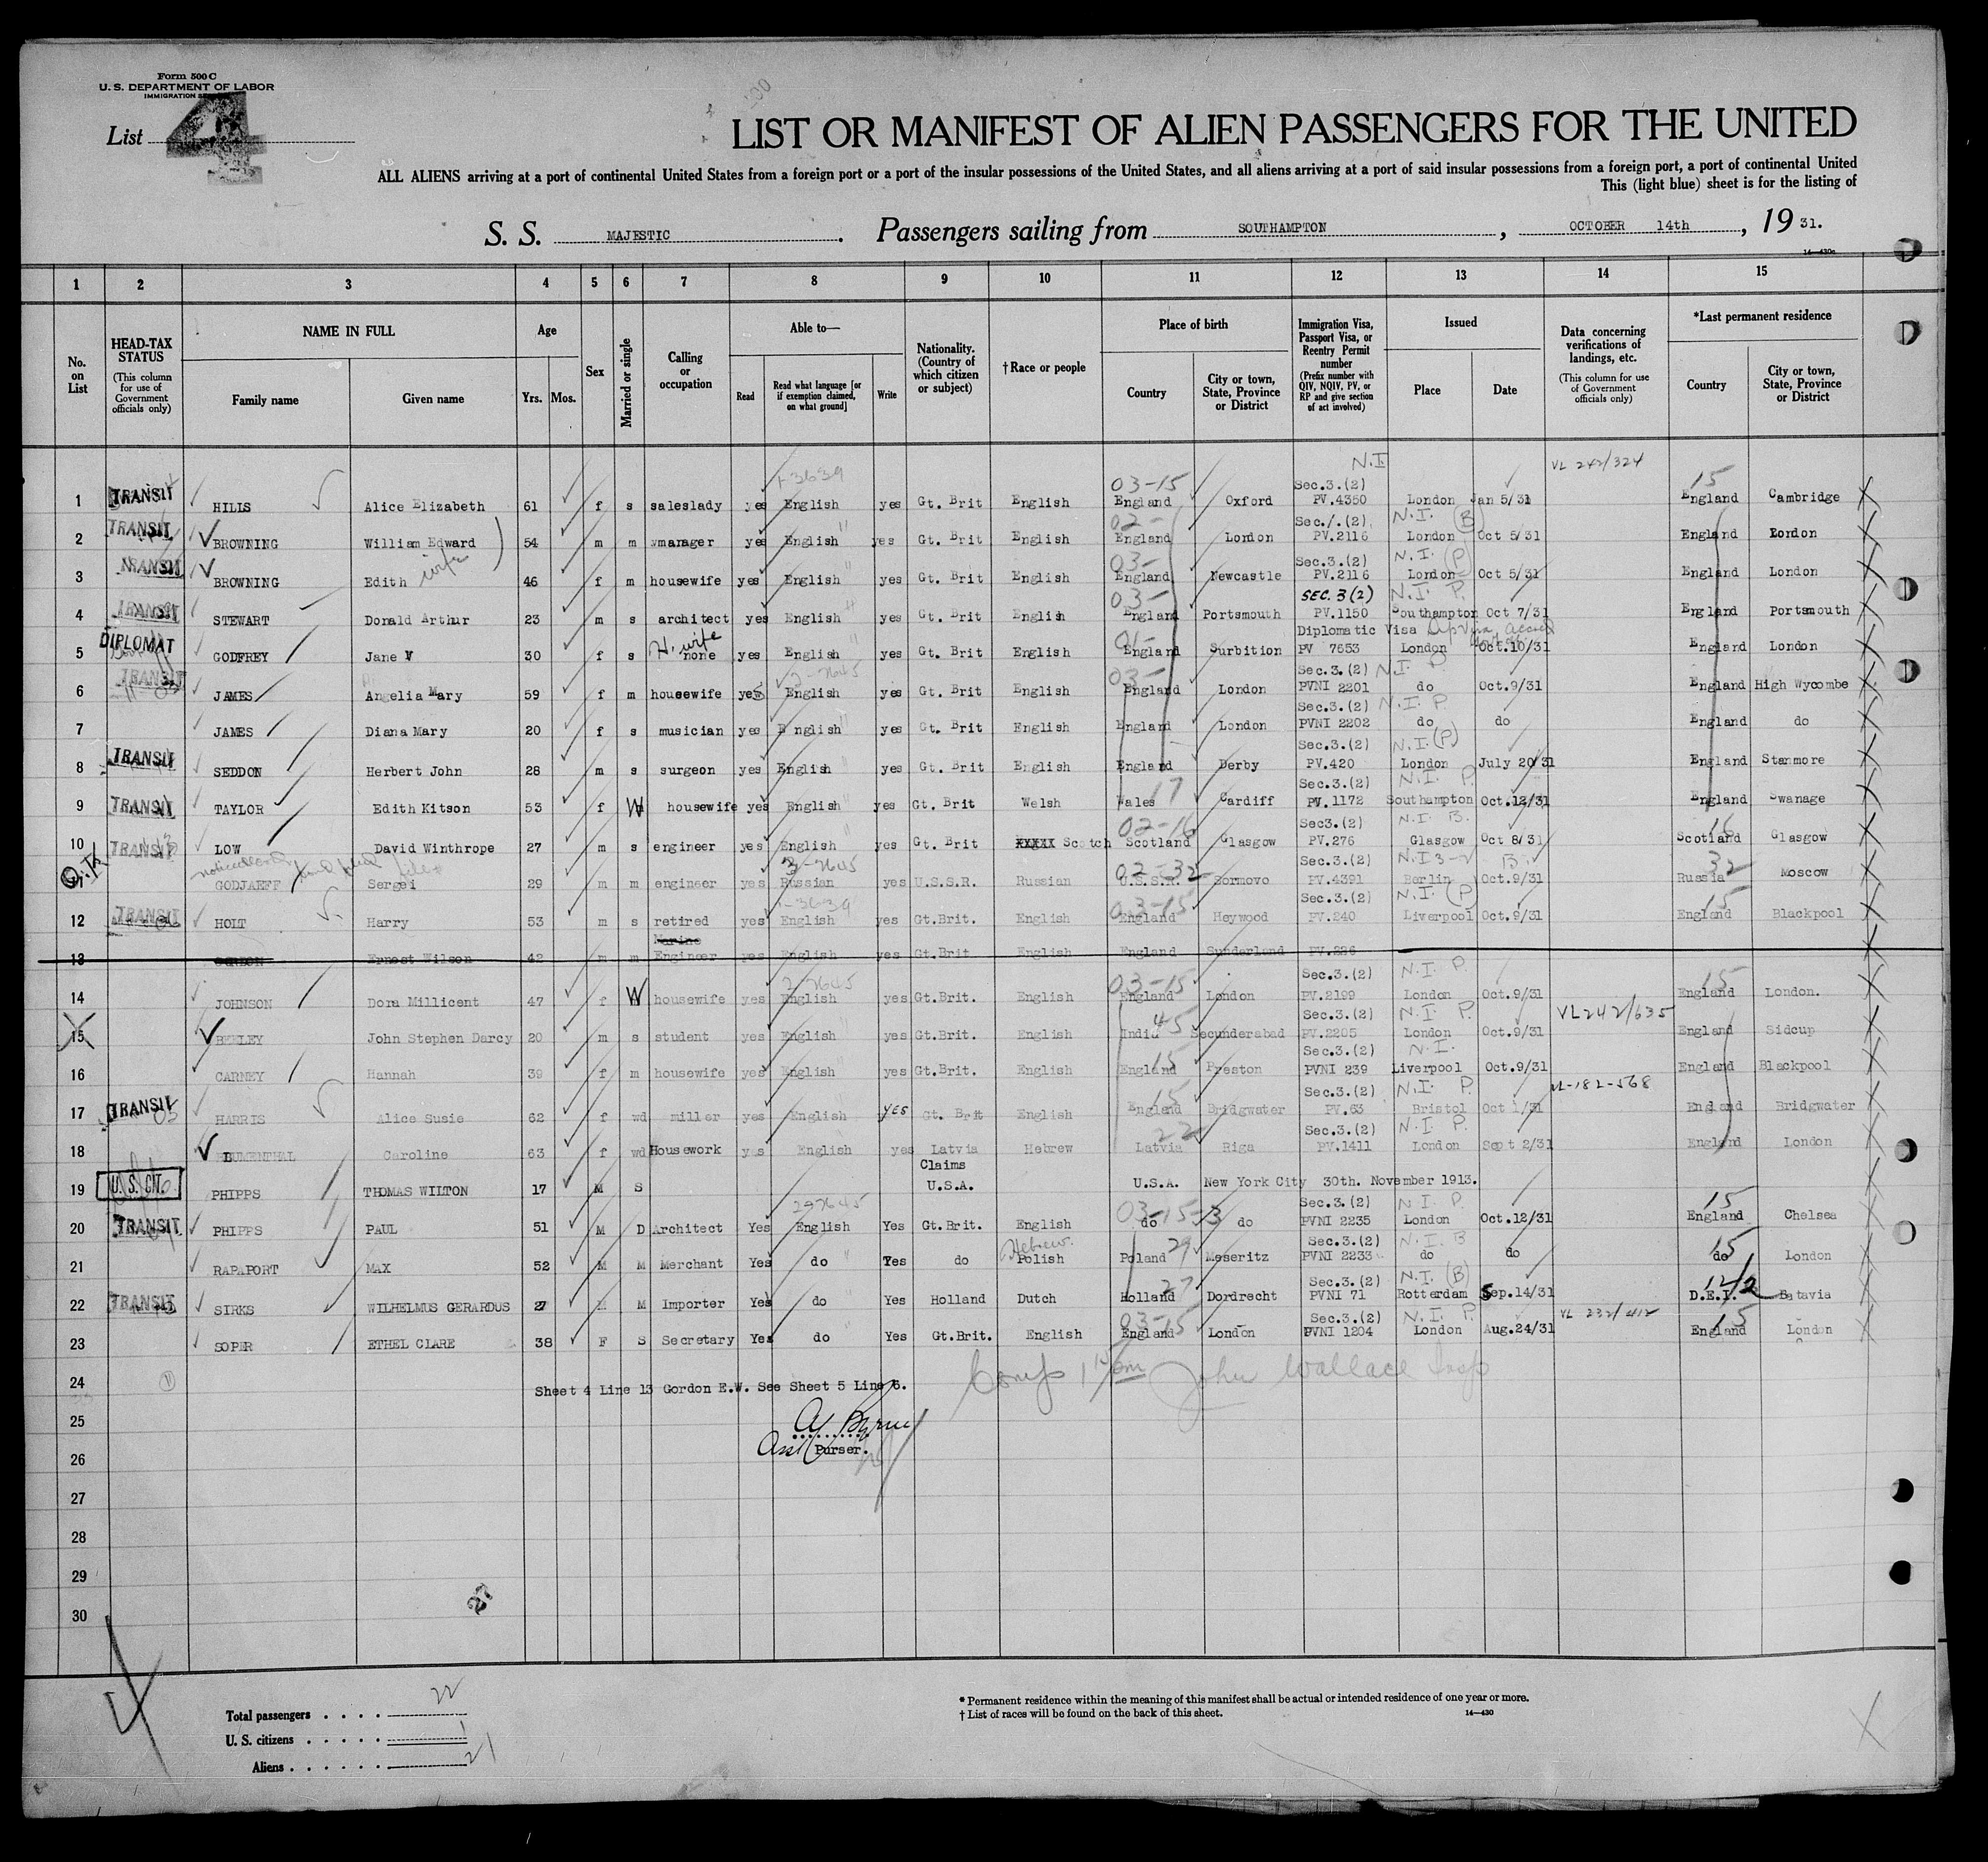 Form 500 C
U. S. DEPARTMENT OF LABOR
IMMIGRATION
List 4
LIST OR MANIFEST OF ALIEN PASSENGERS FOR THE UNITED
ALL ALIENS arriving at a port of continental United States from a foreign port or a port of the insular possessions of the United States, and all aliens arriving at a port of said insular possessions from a foreign port, a port of continental United
This (light blue) sheet is for the listing of
S. S. MAJESTIC. Passengers sailing from SOUTHAMPTON, OCTOBER 14th, 19 31.
14—430c
1 2 3 4 5 6 7 8 9 10 11 12 13 14 15
No. on List
HEAD-TAX STATUS (This column for use of Government officials only)
NAME IN FULL
Family name Given name
Age Yrs. Mos.
Sex
Married or single
Calling or occupation
Able to—
Read Read what language [or if exemption claimed, on what ground] Write
Nationality. (Country of which citizen or subject)
†Race or people
Place of birth
Country City or town, State, Province or District
Immigration Visa, Passport Visa, or Reentry Permit number (Prefix number with QIV, NQIV, PV, or RP and give section of act involved)
Issued
Place Date
Data concerning verifications of landings, etc. (This column for use of Government officials only)
*Last permanent residence
Country City or town, State, Province or District
1-3639 N.I. VL 242/324
03-15 Sec.3.(2) 15
1 TRANSIT HILLS Alice Elizabeth 61 f s saleslady yes English yes Gt. Brit English England Oxford PV.4350 London Jan 5/31 England Cambridge
02- Sec/.(2) N.I. (B)
2 TRANSIT BROWNING William Edward 54 m m manager yes English yes Gt. Brit English England London PV.2116 London Oct 5/31 England London
03- Sec.3.(2) N.I. (P)
3 TRANSIT BROWNING Edith wife 46 f m housewife yes English yes Gt. Brit English England Newcastle PV.2116 London Oct 5/31 England London
03- SEC. 3(2) N.I. P.
4 TRANSIT STEWART Donald Arthur 23 m s architect yes English yes Gt. Brit English England Portsmouth PV.1150 Southampton Oct 7/31 England Portsmouth
DIPLOMAT H. wife 01- Diplomatic Visa
5 GODFREY Jane V 30 f s none yes English yes Gt. Brit English England Surbition PV 7653 London Oct.10/31 England London
2-7645 03- Sec.3.(2) N.I. P
6 TRANSIT JAMES Angelia Mary 59 f m housewife yes English yes Gt. Brit English England London PVNI 2201 do Oct.9/31 England High Wycombe
Sec.3.(2) N.I. P
7 JAMES Diana Mary 20 f s musician yes English yes Gt. Brit English England London PVNI 2202 do do England do
Sec.3.(2) N.I.(P)
8 TRANSIT SEDDON Herbert John 28 m s surgeon yes English yes Gt. Brit English England Derby PV.420 London July 20/31 England Stanmore
Sec.3.(2) N.I. P.
9 TRANSIT TAYLOR Edith Kitson 53 f W housewife yes English yes Gt. Brit Welsh Wales 17 Cardiff PV.1172 Southampton Oct.12/31 England Swanage
02-16 Sec3.(2) N.I. B. 16
10 TRANSIT LOW David Winthrope 27 m s engineer yes English yes Gt. Brit XXXXX Scotch Scotland Glasgow PV.276 Glasgow Oct 8/31 Scotland Glasgow
3-7645 02-32 Sec.3.(2) 32
GODJAEFF Sergei 29 m m engineer yes Russian yes U.S.S.R. Russian U.S.S.R. Sormovo PV.4391 Berlin Oct.9/31 Russia Moscow
1-3639 03-15 Sec.3.(2) N.I. (P) 15
12 TRANSIT HOLT Harry 53 m s retired yes English yes Gt.Brit. English England Heywood PV.240 Liverpool Oct.9/31 England Blackpool
Marine
13 GORDON Ernest Wilson 42 m m Engineer yes English yes Gt.Brit English England Sunderland PV.226
2-7645 03-15 Sec.3.(2) N.I. P. 15
14 JOHNSON Dora Millicent 47 f W housewife yes English yes Gt.Brit. English England London PV.2199 London Oct.9/31 England London.
45 Sec.3.(2) N.I. P. VL242/635
15 John Stephen Darcy 20 m s student yes English yes Gt.Brit. English India Secunderabad PV.2205 London Oct.9/31 England Sidcup
15 Sec.3.(2) N.I.
16 CARNEY Hannah 39 f m housewife yes English yes Gt.Brit. English England Preston PVNI 239 Liverpool Oct.9/31 England Blackpool
15 Sec.3.(2) N.I. P. VL-182-568
17 TRANSIT HARRIS Alice Susie 62 f wd miller yes English YES Gt. Brit English England Bridgwater PV.63 Bristol Oct 1/31 England Bridgwater
22 Sec.3.(2) N.I. P.
18 BLUMENTHAL Caroline 63 f wd Housework yes English yes Latvia Hebrew Latvia Riga PV.1411 London Sept 2/31 England London
Claims
19 U.S. CIT. PHIPPS THOMAS WILTON 17 M S U.S.A. U.S.A. New York City 30th. November 1913.
2-7645 03-15-3 Sec.3.(2) N.I. P. 15
20 TRANSIT PHIPPS PAUL 51 M D Architect Yes English Yes Gt.Brit. English do do PVNI 2235 London Oct.12/31 England Chelsea
Hebrew 29 Sec.3.(2) N.I. B 15
21 RAPAPORT MAX 52 M M Merchant Yes do Yes do Polish Poland Meseritz PVNI 2233 do do do London
27 Sec.3.(2) N.I. (B)
22 TRANSIT SIRKS WILHELMUS GERARDUS 27 M M Importer Yes do Yes Holland Dutch Holland Dordrecht PVNI 71 Rotterdam Sep.14/31 D.E.I. Batavia
03-15 Sec.3.(2) N.I. P. VL 232/412 15
23 SOPER ETHEL CLARE 38 F S Secretary Yes do Yes Gt.Brit. English England London PVNI 1204 London Aug.24/31 England London
24 Sheet 4 Line 13 Gordon E.W. See Sheet 5 Line 6. John Wallace Insp
25
Purser.
26
27
28
29
30
Total passengers . . . . 22
U. S. citizens . . . . . 1
Aliens . . . . . . 21
* Permanent residence within the meaning of this manifest shall be actual or intended residence of one year or more.
† List of races will be found on the back of this sheet.
14—430